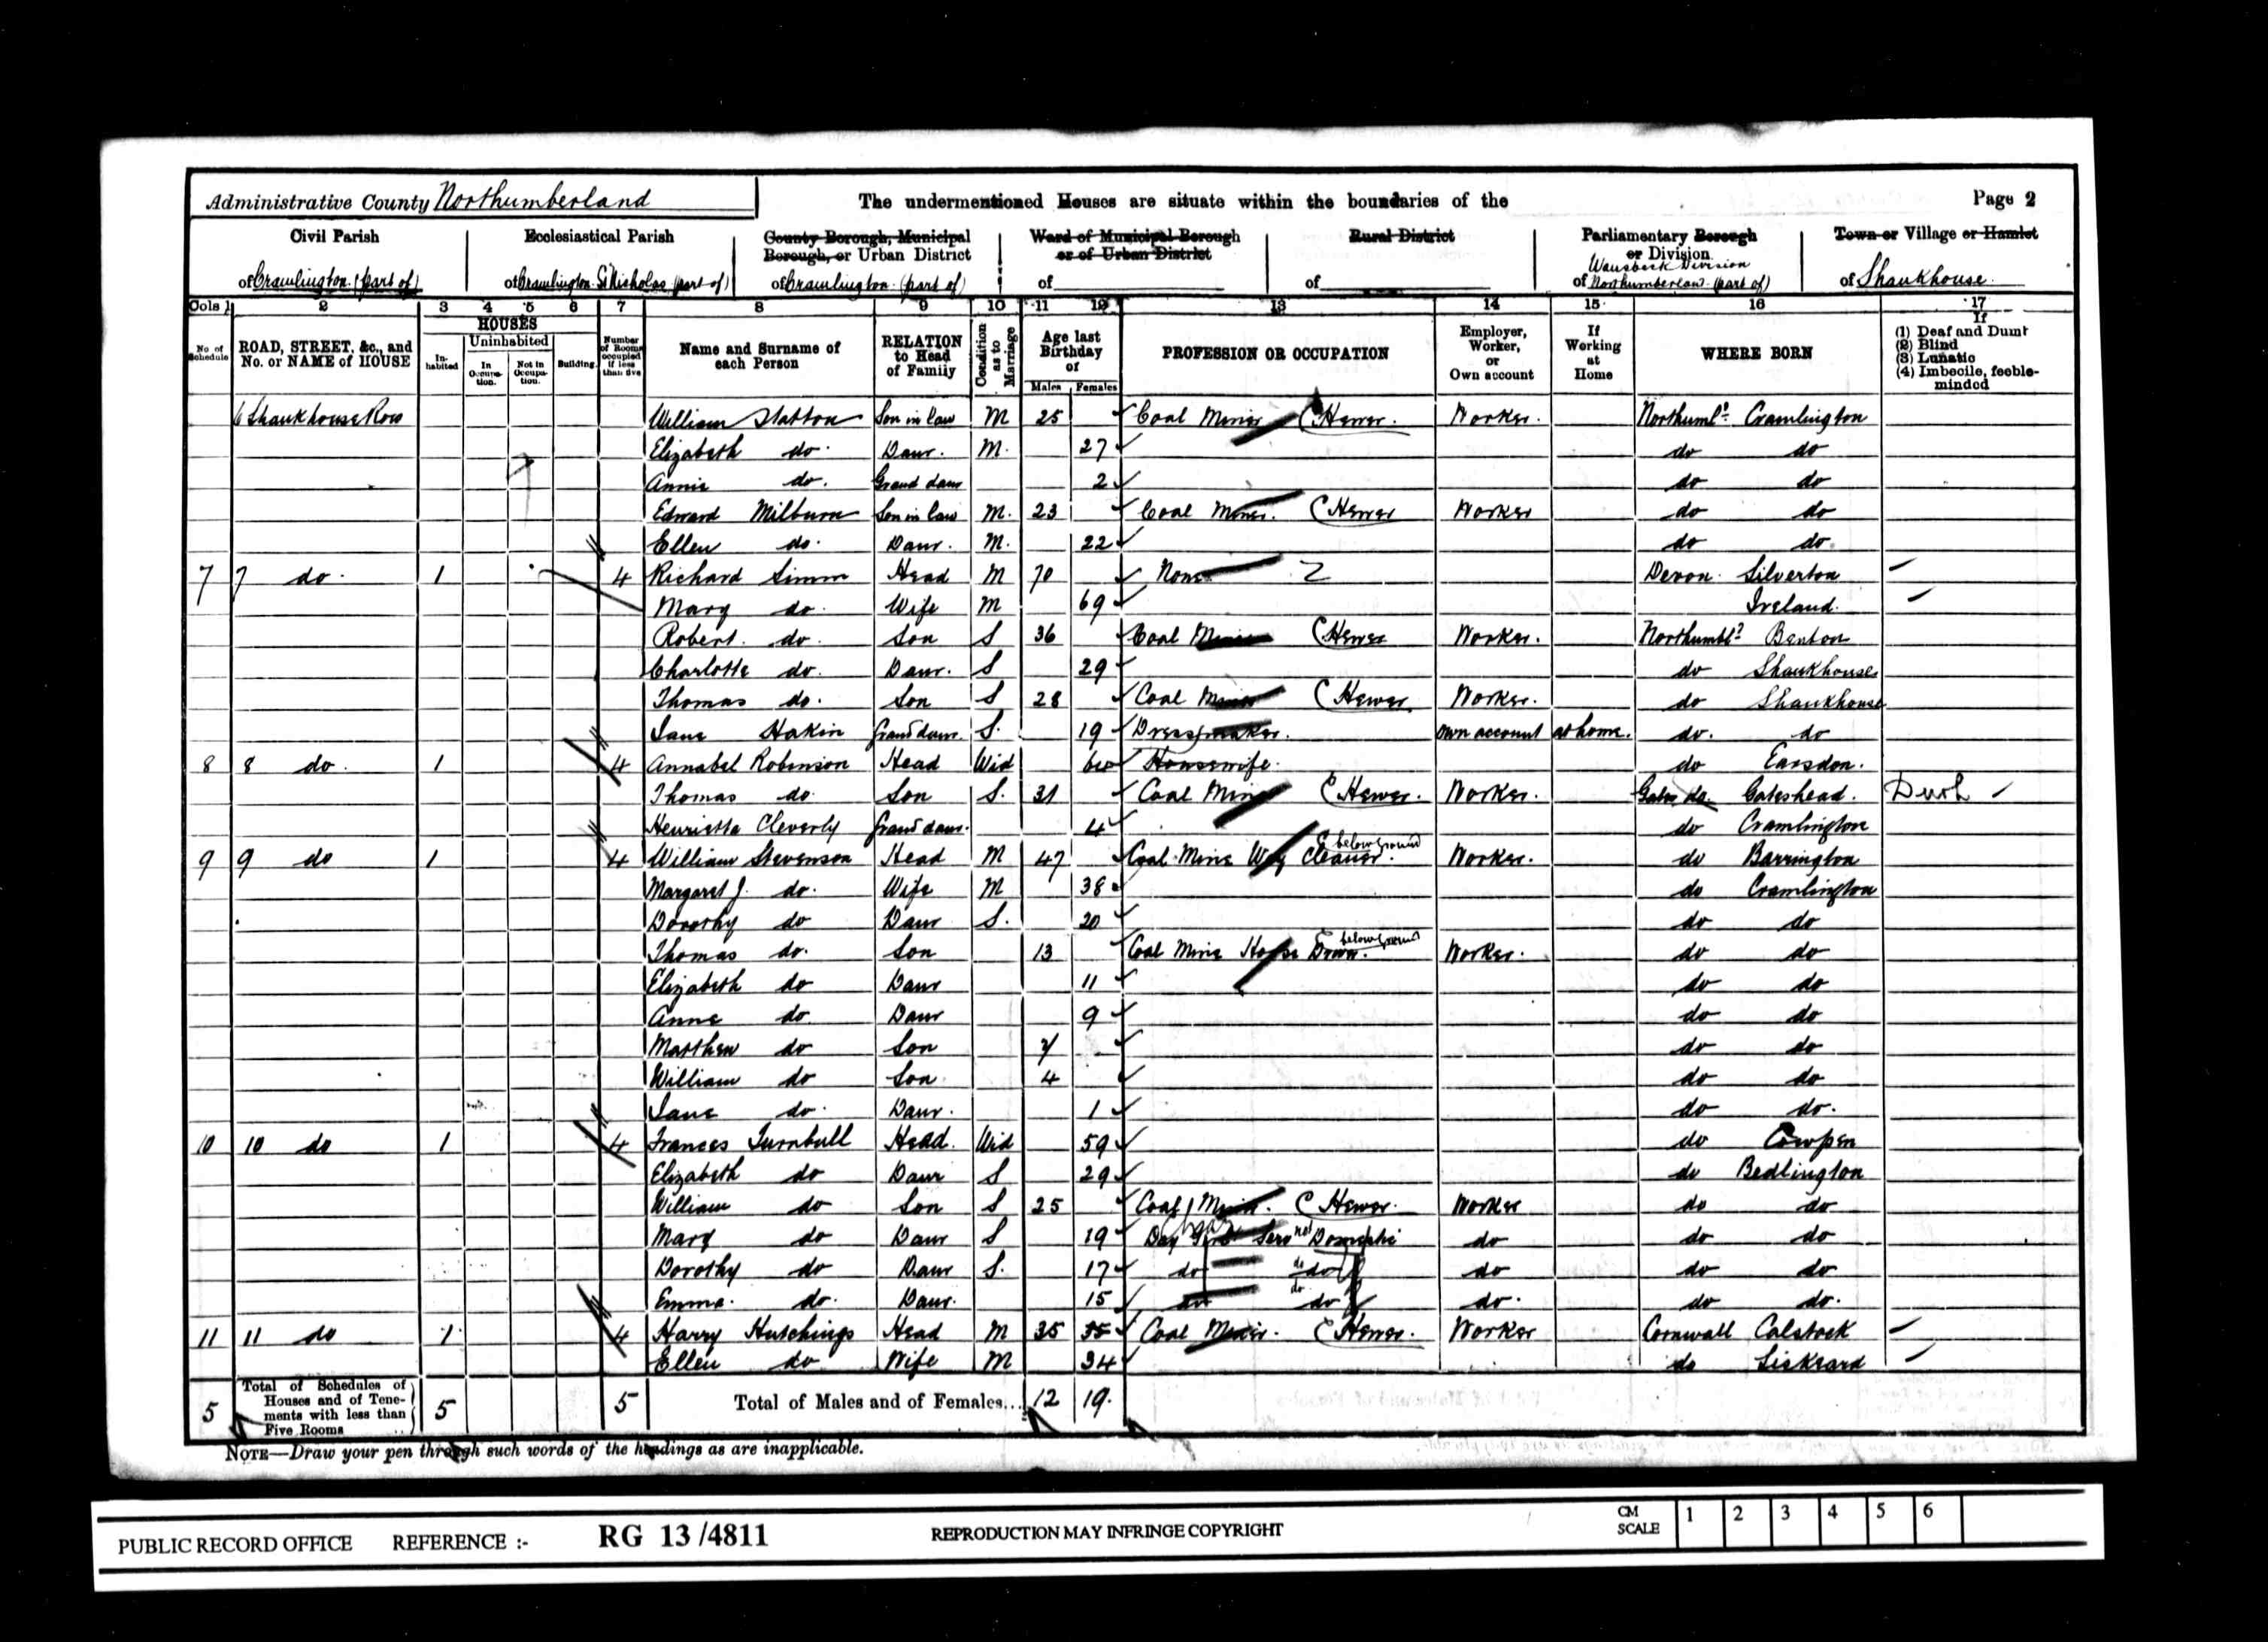 Administrative County Northumberland The undermentioned Houses are situate within the boundaries of the Page 2
Civil Parish Ecclesiastical Parish County Borough, Municipal Borough, or Urban District Ward of Municipal Borough or of Urban District Rural District Parliamentary Borough or Division Town or Village or Hamlet
of Cramlington (part of) of Cramlington St Nicholas (part of) of Cramlington (part of) of of of Wansbeck Division Northumberland (part of) of Shankhouse
Cols 1 2 3 4 5 6 7 8 9 10 11 12 13 14 15 16 17
No of Schedule ROAD, STREET, &c., and No. or NAME of HOUSE HOUSES Inhabited Uninhabited In Occupation. Not in Occupation. Building. Number of Rooms occupied if less than five Name and Surname of each Person RELATION to Head of Family Condition as to Marriage Age last Birthday of Males Females PROFESSION OR OCCUPATION Employer, Worker, or Own account If Working at Home WHERE BORN If (1) Deaf and Dumb (2) Blind (3) Lunatic (4) Imbecile, feeble-minded
6 Shankhouse Row William Statton Son in law M 25 Coal Miner (Hewer. Worker. Northumld. Cramlington
Elizabeth do. Daur. M. 27 do do
Annie do. Grand daur 2 do do
Edward Milburn Son in law M. 23 Coal Miner. (Hewer Worker do do
Ellen do. Daur. M. 22 do do.
7 7 do. 1 4 Richard Simm Head M 70 None Devon. Silverton
Mary do. Wife M 69 Ireland.
Robert. do. Son S 36 Coal Miner (Hewer Worker. Northumbld. Benton
Charlotte do. Daur. S 29 do Shankhouse
Thomas do. Son S 28 Coal Miner (Hewer. Worker. do Shankhouse
Jane Hakin Grand daur. S. 19 Dressmaker. own account at home. do. do
8 8 do. 1 4 Annabel Robinson Head Wid 60 Housewife. do Earsdon.
Thomas do. Son S. 31 Coal Miner (Hewer. Worker. do. Gateshead.
Henrietta Cleverly Grand daur. 4 do Cramlington
9 9 do 1 4 William Stevenson Head M 47 Coal Mine Way Cleaner. below ground Worker. do Barrington
Margaret J. do. Wife M 38 do Cramlington
Dorothy do Daur S. 20 do do
Thomas do. Son 13 Coal Mine Horse Driver. below ground Worker. do do
Elizabeth do Daur 11 do do
Anne do. Daur 9 do do
Matthew do Son 7 do do
William do Son 4 do do
Jane do. Daur. 1 do do.
10 10 do 1 4 Frances Turnbull Head. Wid 59 do Cowpen
Elizabeth do Daur S 29 do Bedlington
William do Son S 25 Coal Miner. (Hewer. Worker do do
Mary do Daur S 19 Day Serv not Domestic do do do
Dorothy do Daur S. 17 do do do do do
Emma. do. Daur. 15 do do do. do do.
11 11 do 1 4 Harry Hutchings Head M 35 35 Coal Miner. (Hewer. Worker Cornwall Calstock
Ellen do Wife M 34 do Liskeard
5 Total of Schedules of Houses and of Tenements with less than Five Rooms 5 5 Total of Males and of Females... 12 19.
NOTE—Draw your pen through such words of the headings as are inapplicable.
PUBLIC RECORD OFFICE REFERENCE :- RG 13/4811 REPRODUCTION MAY INFRINGE COPYRIGHT CM SCALE 1 2 3 4 5 6